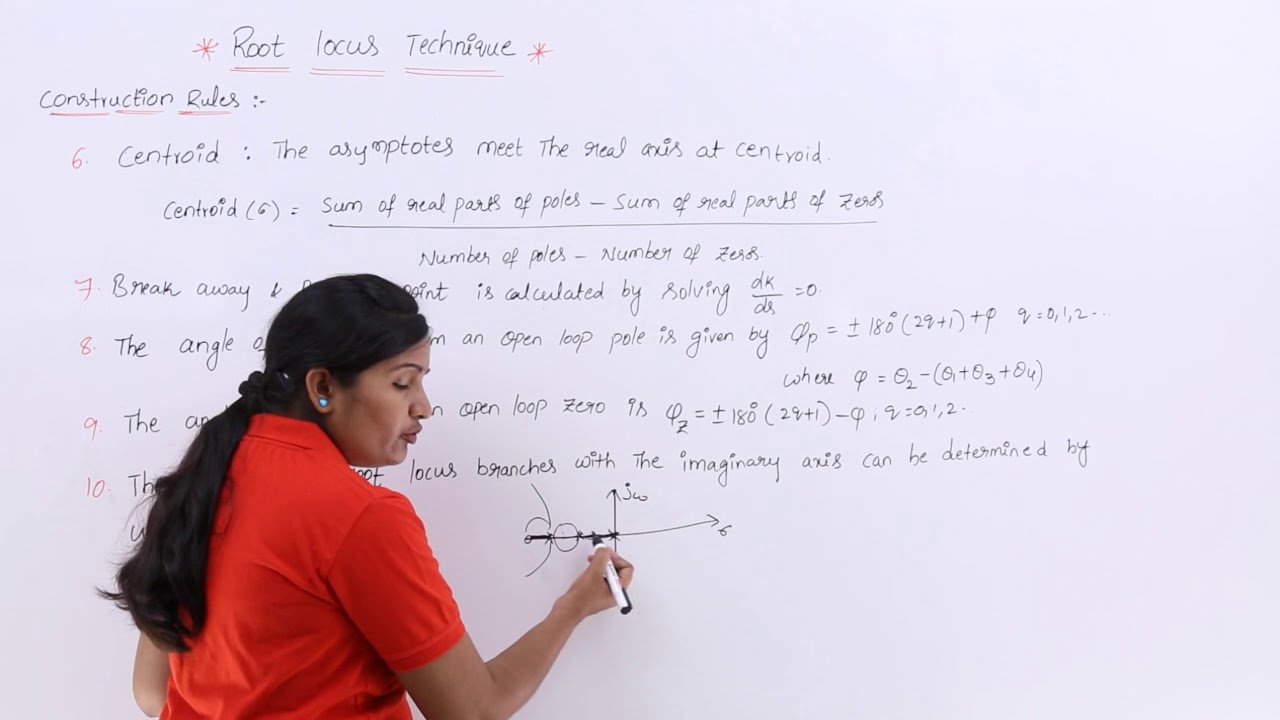 * Root locus Technique *
Construction Rules :-
6. Centroid : The asymptotes meet The real axis at centroid.
Centroid (σ) = Sum of real parts of poles – Sum of real parts of zeros
Number of poles – Number of zeros.
7. Break away & point is calculated by solving dk/ds = 0.
8. The angle an open loop pole is given by φp = ± 180° (2q+1) + φ q = 0, 1, 2 ...
where φ = θ2 – (θ1 + θ3 + θ4)
9. The open loop zero is φz = ± 180° (2q+1) – φ ; q = 0, 1, 2 ..
10. locus branches with The imaginary axis can be determined by
jω
σ